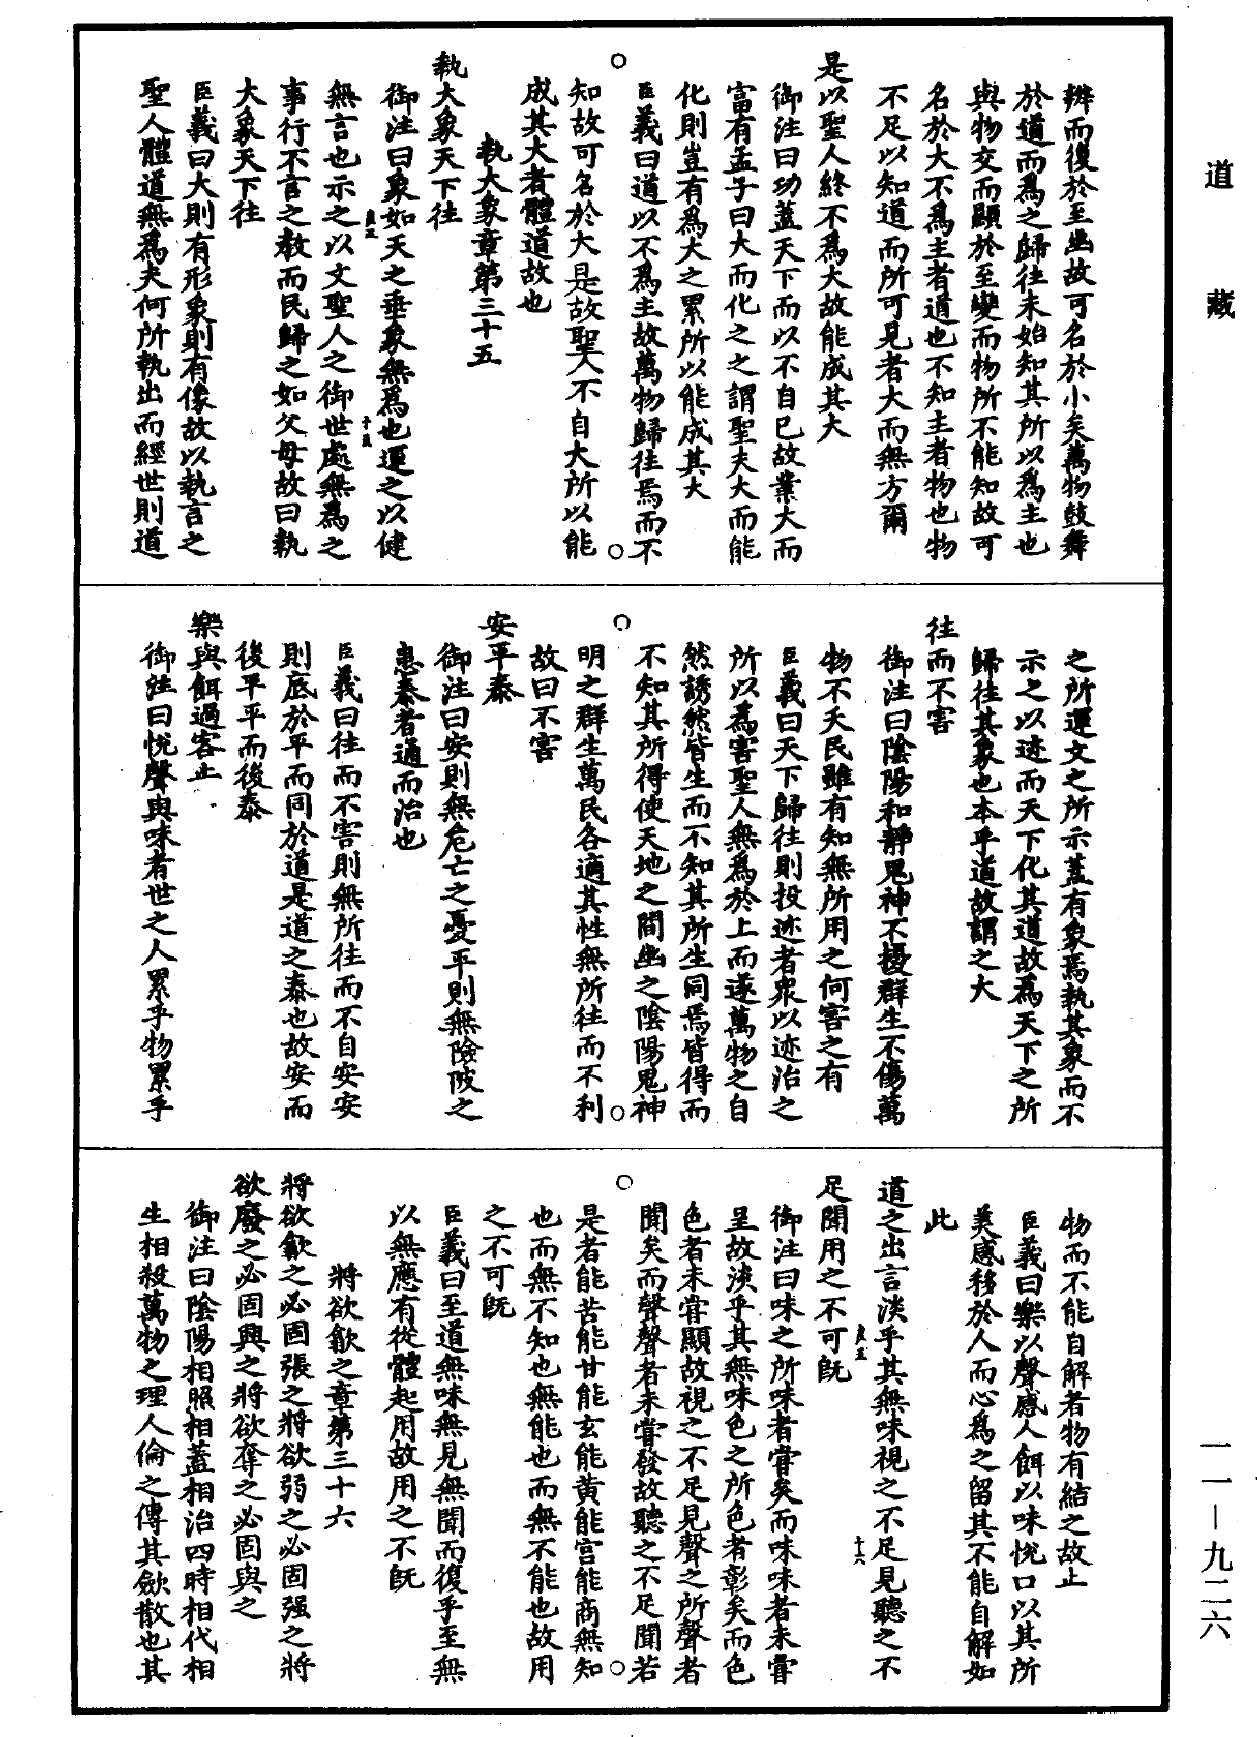 道藏
辯而後於至幽故可名於小矣萬物鼓舞
於道而為之歸往未始知其所以為主也
與物交而顯於至變而物所不能知故可
名於大不為主者道也不知主者物也物
不足以知道而所可見者大而無方爾
是以聖人終不為大故能成其大
御注曰功蓋天下而以不自已故業大而
富有孟子曰大而化之之謂聖夫大而能
化則豈有為大之累所以能成其大
臣義曰道以不為主故萬物歸往焉而不
知故可名於大是故聖人不自大所以能
成其大者體道故也
執大象章第三十五
執大象天下往
御注曰象如天之垂象無為也運之以健
無言也示之以文聖人之御世處無為之
事行不言之教而民歸之如父母故曰執
大象天下往
臣義曰大則有形象則有像故以執言之
聖人體道無為夫何所執出而經世則道
之所運文之所示蓋有象焉執其象而不
示之以迹而天下化其道故為天下之所
歸往其象也本乎道故謂之大
往而不害
御注曰陰陽和靜鬼神不擾群生不傷萬
物不夭民雖有知無所用之何害之有
臣義曰天下歸往則投迹者衆以迹治之
所以為害聖人無為於上而遂萬物之自
然誘然皆生而不知其所生同焉皆得而
不知其所得使天地之間幽之陰陽鬼神
明之群生萬民各適其性無所往而不利
故曰不害
安平泰
御注曰安則無危亡之憂平則無險陂之
患泰者通而治也
臣義曰往而不害則無所往而不自安安
則底於平而同於道是道之泰也故安而
後平平而後泰
樂與餌過客止
御注曰悅聲與味者世之人累乎物累乎
物而不能自解者物有結之故止
臣義曰樂以聲感人餌以味悅口以其所
美感移於人而心為之留其不能自解如
此
道之出言淡乎其無味視之不足見聽之不
足聞用之不可既
御注曰味之所味者嘗矣而味味者未嘗
呈故淡乎其無味色之所色者彰矣而色
色者未嘗顯故視之不足見聲之所聲者
聞矣而聲聲者未嘗發故聽之不足聞若
是者能苦能甘能玄能黃能宮能商無知
也而無不知也無能也而無不能也故用
之不可既
臣義曰至道無味無見無聞而復乎至無
以無應有從體起用故用之不既
將欲歙之章第三十六
將欲歙之必固張之將欲弱之必固强之將
欲廢之必固興之將欲奪之必固與之
御注曰陰陽相照相蓋相治四時相代相
生相殺萬物之理人倫之傳其歛散也其
一一—九二六